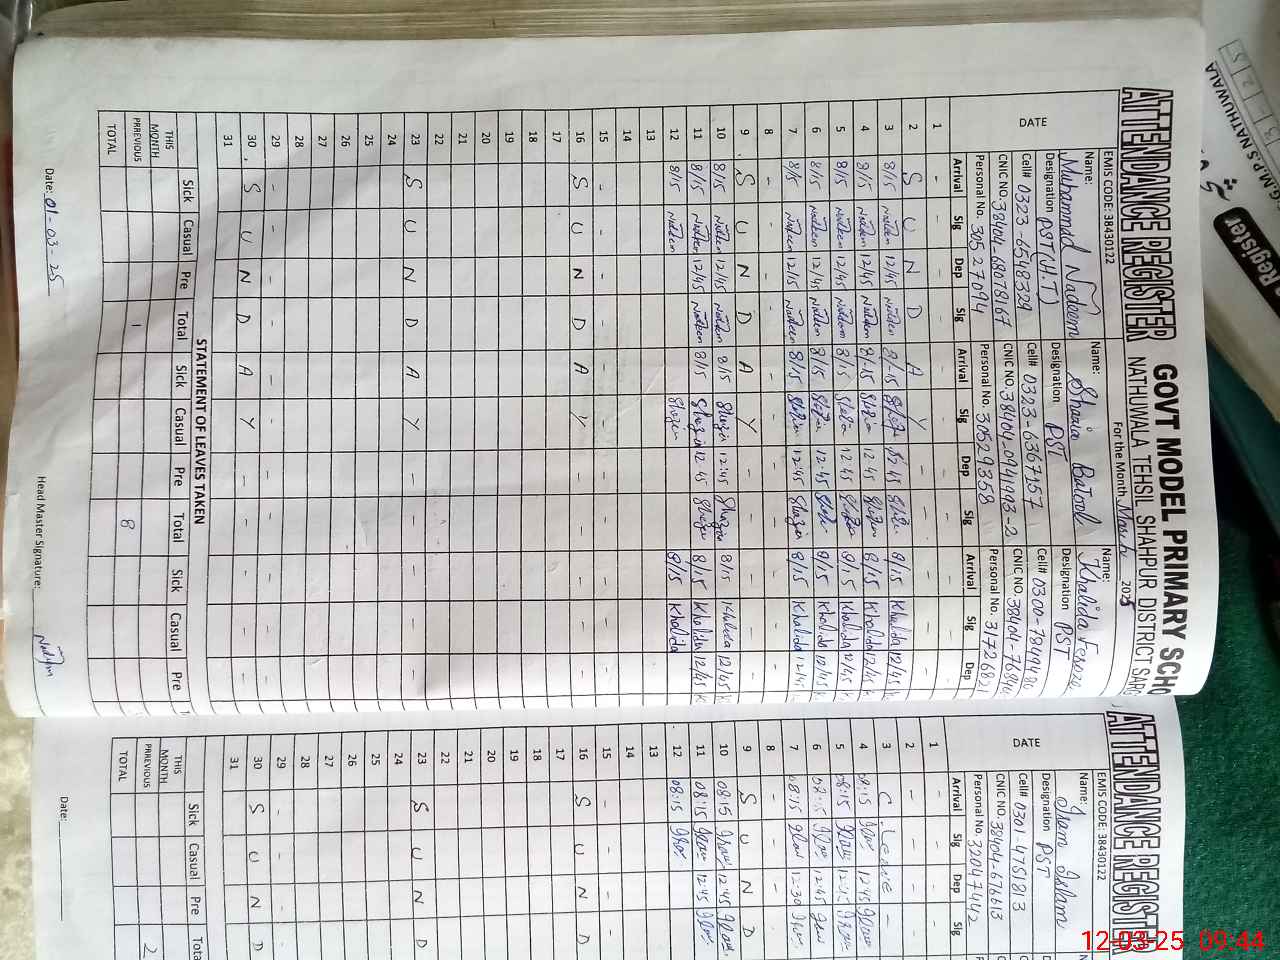 ATTENDANCE REGISTER GOVT MODEL PRIMARY SCHO
NATHUWALA TEHSIL SHAHPUR DISTRICT SARG
EMIS CODE: 38430122
For the Month March 2025
DATE
Name: Muhammad Nadeem
Designation PST(H.T)
Cell# 0323-6548329
CNIC NO. 38404-6807816-7
Personal No. 30527094
Name: Shazia Batool
Designation PST
Cell# 0323-6367157
Personal No. 30529358
Name: Khalida
Designation PST
Personal No.
Arrival Sig Dep Sig Arrival Sig Dep Sig Arrival Sig Dep
1 - - - - - - - - -
2 S U N D A Y - - - - -
3 8/15 Nadeem 12/45 Nadeem
4 8/15 Nadeem 12/45 Nadeem 8/15 12:45 8/15 Khalida 12/45
5 8/15 Nadeem 12/45 Nadeem 8/15 12:45 8/15 Khalida 12/45
6 8/15 Nadeem 12/45 Nadeem 8/15 12:45 8/15 Khalida 12/45
7 8/15 Nadeem 12/15 Nadeem 8/15 12:45 Shazia 8/15 Khalida 12/45
8 - - - - - - - -
9 S U N D A Y - - - - -
10 8/15 Nadeem 12/45 Nadeem 8/15 Shazia 12:45 Shazia 8/15 Khalida 12/45
11 8/15 Nadeem 12/45 Nadeem 8/15 Shazia 12:45 Shazia 8/15 Khalida 12/45
12 8/15 Nadeem Shazia 8/15 Khalida
13
14
15 - - - - - - - -
16 S U N D A Y - - - - -
17
18
19
20
21
22
23 S U N D A Y - - - - -
24
25
26
27
28
29 - - - - - - - -
30 S U N D A Y - - - - -
31
STATEMENT OF LEAVES TAKEN
Sick Casual Pre Total Sick Casual Pre Total Sick Casual Pre
THIS MONTH
PRREVIOUS 1 8
TOTAL
Date: 01-03-25
Head Master Signature: Nadeem
ATTENDANCE REGISTER
EMIS CODE: 38430122
DATE
Name: Iram Islam
Designation PST
Cell# 0301-4751813
CNIC NO. 38404-676613
Personal No. 32047442
Arrival Sig Dep Sig
1 - - -
2 - - -
3 C. Leave -
4 08:15 12:45
5 08:15
6 08:15 12:45
7 08:15 12:30
8 - - -
9 S U N D
10 08:15 12:45
11 08:15 12:45
12 08:15
13
14
15 - - -
16 S U N D
17
18
19
20
21
22
23 S U N D
24
25
26
27
28
29 - - -
30 S U N D
31
Sick Casual Pre Tota
THIS MONTH
PRREVIOUS 2
TOTAL
Date:
G.M.P.S NATHUWALA
Register
12-03-25 09:44